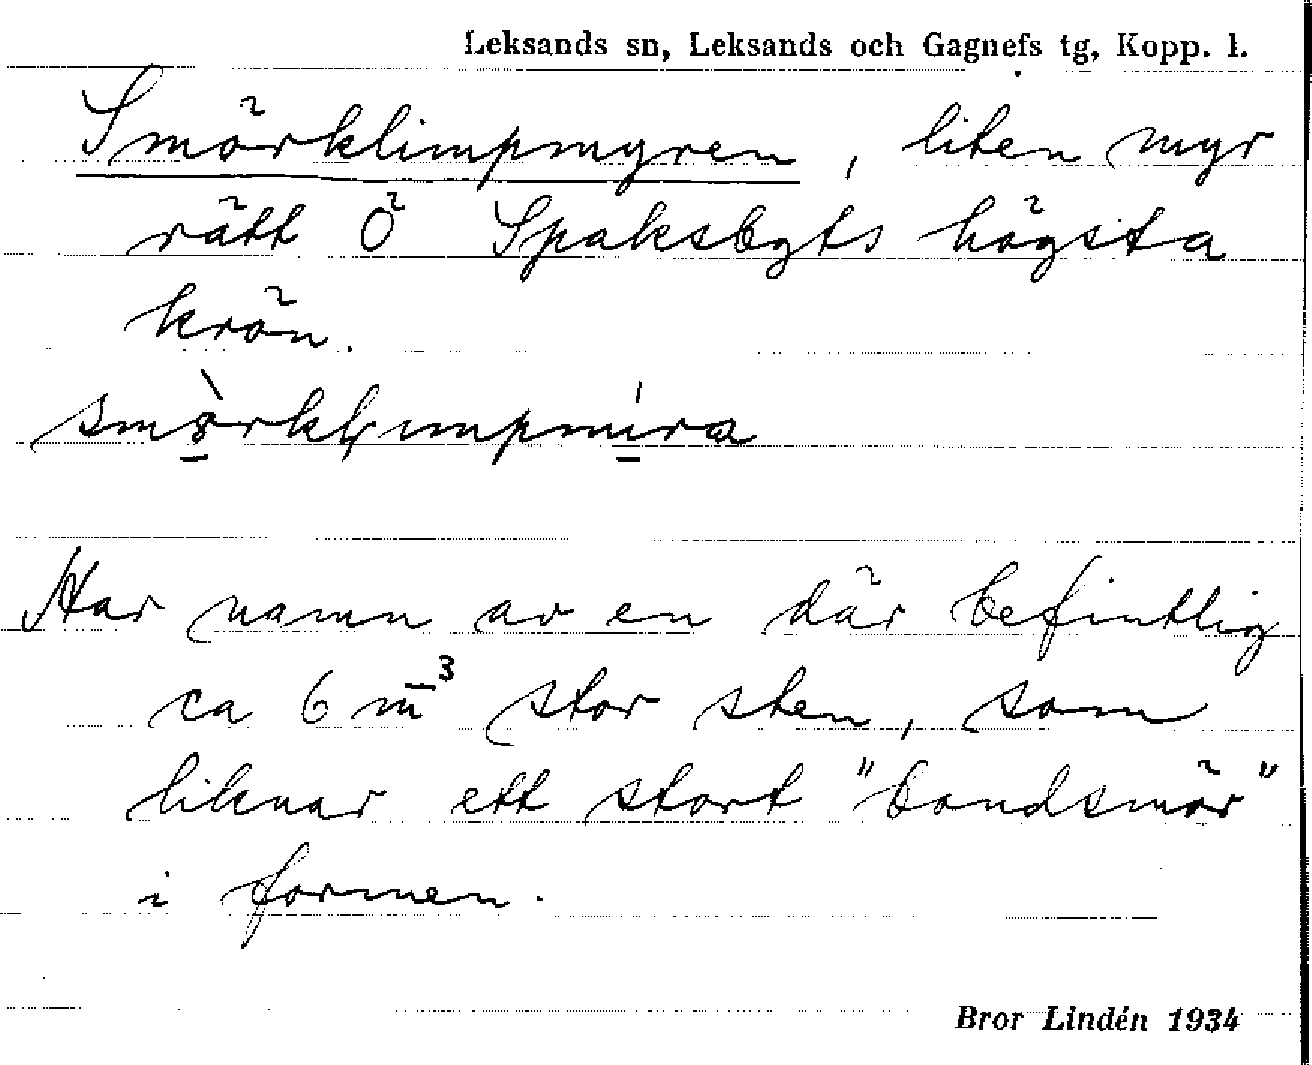 Leksands sn, Leksands och Gagnefs tg, Kopp. l.
Smörklimpmyren, liten myr
rätt Ö Spaksbygts högsta
krön.
Har namn av en där befintlig
ca 6 m³ stor sten, som
liknar ett stort "bondsmör"
i formen.
Bror Lindén 1934